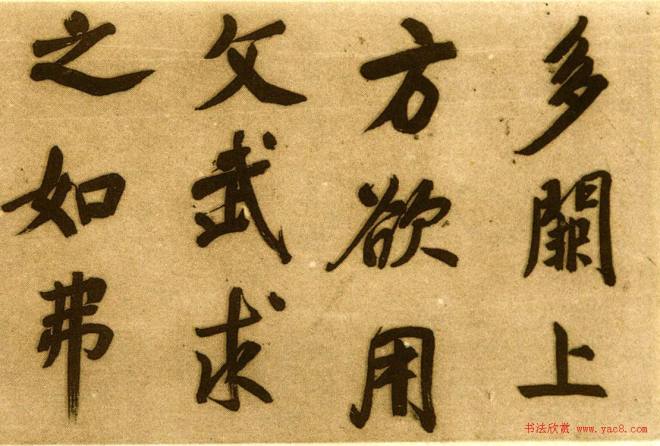 多闕上
方欲用
文武求
之如弗
书法欣赏 www.yac8.com